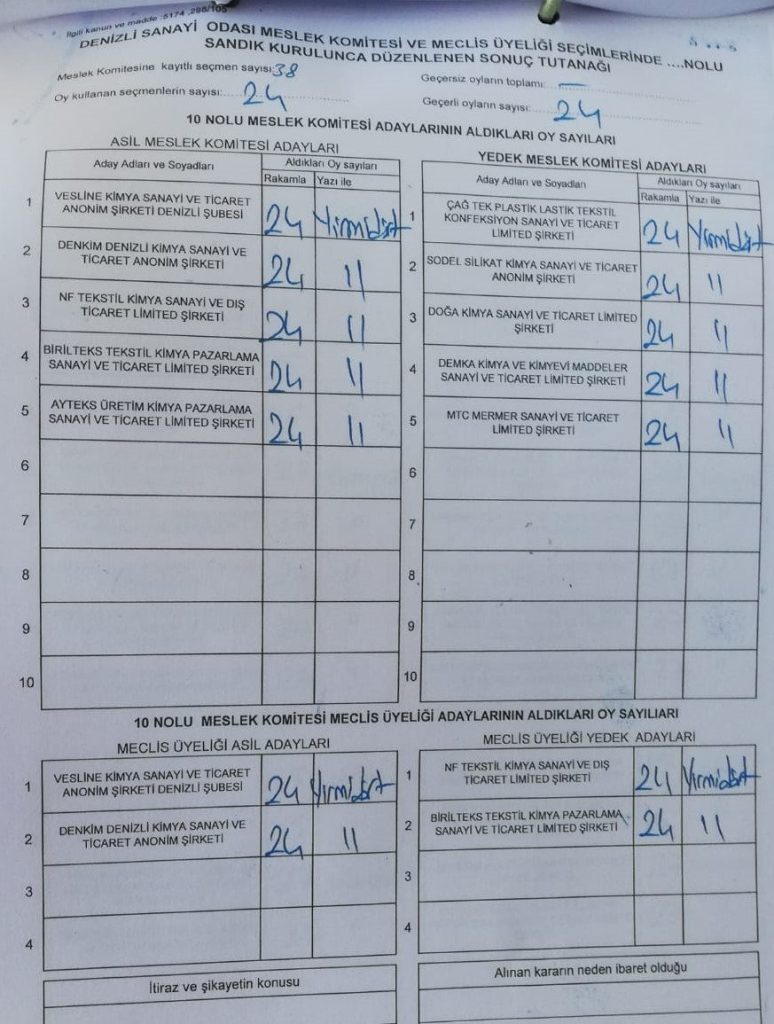 İlgili kanun ve madde :5174 ,296/105
DENİZLİ SANAYİ ODASI MESLEK KOMİTESİ VE MECLİS ÜYELİĞİ SEÇİMLERİNDE ....NOLU
SANDIK KURULUNCA DÜZENLENEN SONUÇ TUTANAĞI
Meslek Komitesine kayıtlı seçmen sayısı: 38
Geçersiz oyların toplamı: —
Oy kullanan seçmenlerin sayısı: 24
Geçerli oyların sayısı: 24
10 NOLU MESLEK KOMİTESİ ADAYLARININ ALDIKLARI OY SAYILARI
ASİL MESLEK KOMİTESİ ADAYLARI
Aday Adları ve Soyadları Aldıkları Oy sayıları
Rakamla Yazı ile
1 VESLİNE KİMYA SANAYİ VE TİCARET
ANONİM ŞİRKETİ DENİZLİ ŞUBESİ 24 Yirmidört
2 DENKİM DENİZLİ KİMYA SANAYİ VE
TİCARET ANONİM ŞİRKETİ 24 11
3 NF TEKSTİL KİMYA SANAYİ VE DIŞ
TİCARET LİMİTED ŞİRKETİ 24 11
4 BİRİLTEKS TEKSTİL KİMYA PAZARLAMA
SANAYİ VE TİCARET LİMİTED ŞİRKETİ 24 11
5 AYTEKS ÜRETİM KİMYA PAZARLAMA
SANAYİ VE TİCARET LİMİTED ŞİRKETİ 24 11
6
7
8
9
10
YEDEK MESLEK KOMİTESİ ADAYLARI
Aday Adları ve Soyadları Aldıkları Oy sayıları
Rakamla Yazı ile
1 ÇAĞ TEK PLASTİK LASTİK TEKSTİL
KONFEKSİYON SANAYİ VE TİCARET
LİMİTED ŞİRKETİ 24 Yirmidört
2 SODEL SİLİKAT KİMYA SANAYİ VE TİCARET
ANONİM ŞİRKETİ 24 11
3 DOĞA KİMYA SANAYİ VE TİCARET LİMİTED
ŞİRKETİ 24 11
4 DEMKA KİMYA VE KİMYEVİ MADDELER
SANAYİ VE TİCARET LİMİTED ŞİRKETİ 24 11
5 MTC MERMER SANAYİ VE TİCARET
LİMİTED ŞİRKETİ 24 11
6
7
8
9
10
10 NOLU MESLEK KOMİTESİ MECLİS ÜYELİĞİ ADAYLARININ ALDIKLARI OY SAYILIARI
MECLİS ÜYELİĞİ ASİL ADAYLARI
1 VESLİNE KİMYA SANAYİ VE TİCARET
ANONİM ŞİRKETİ DENİZLİ ŞUBESİ 24 Yirmidört
2 DENKİM DENİZLİ KİMYA SANAYİ VE
TİCARET ANONİM ŞİRKETİ 24 11
3
4
MECLİS ÜYELİĞİ YEDEK ADAYLARI
1 NF TEKSTİL KİMYA SANAYİ VE DIŞ
TİCARET LİMİTED ŞİRKETİ 24 Yirmidört
2 BİRİLTEKS TEKSTİL KİMYA PAZARLAMA
SANAYİ VE TİCARET LİMİTED ŞİRKETİ 24 11
3
4
İtiraz ve şikayetin konusu
Alınan kararın neden ibaret olduğu